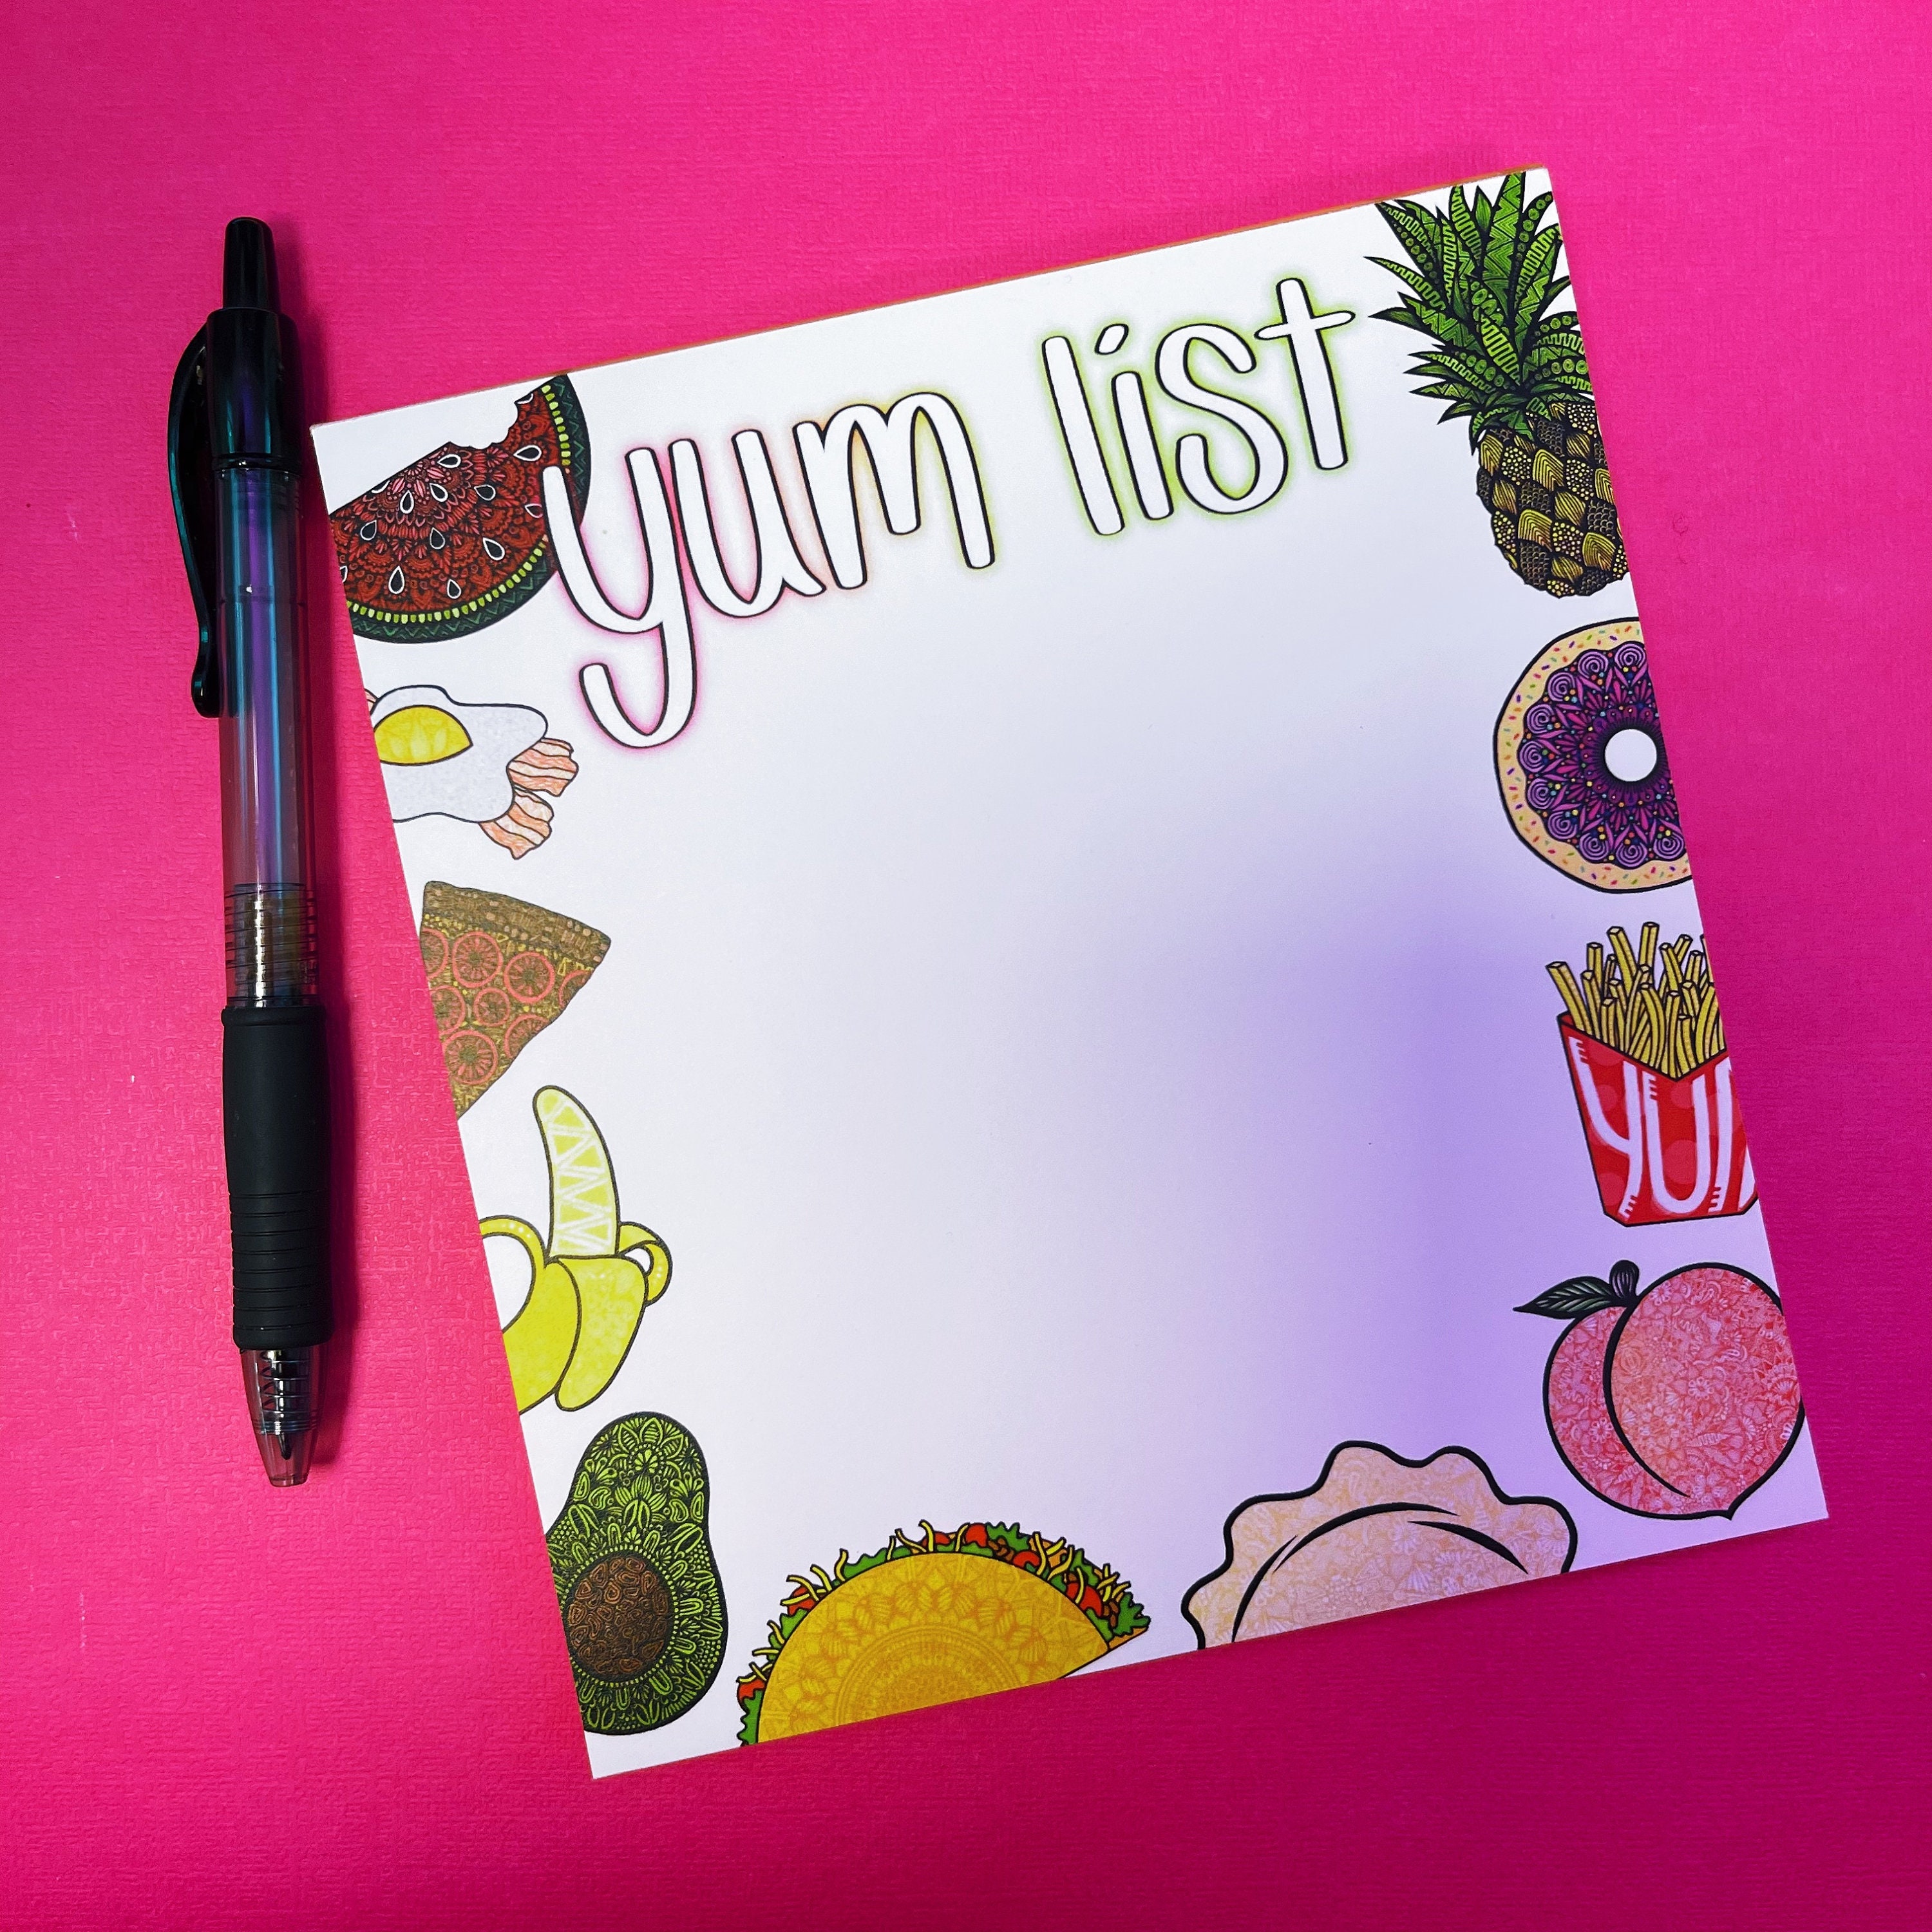 yum list
YUM